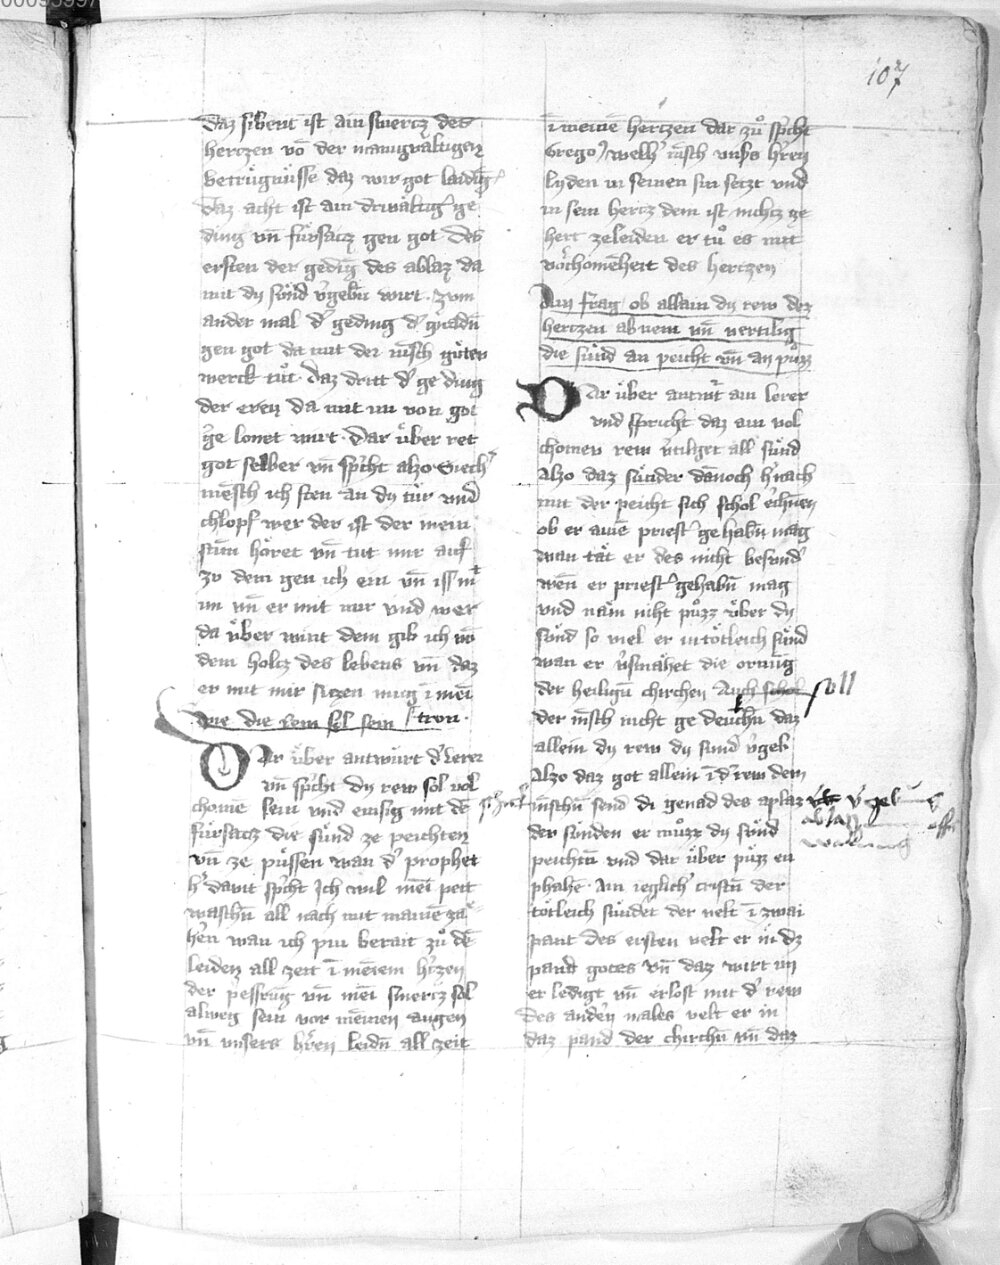 107
Daz sibent ist ain smercz des
herczen vō der manigvaltigen
betrügnüsse daz wir got laidig
Daz acht ist ain driualtig ge
ding vn̄ fürsacz gen got Des
ersten der gedīg des ablaz da
mit dy sünd v̓gebn̄ wirt . zvm
ander mal d̓ geding d̓ gnadn̄
gen got da mit der mēsch güten
werck tůt . daz dritt d̓ ge ding
der eren da mit im von got
ge lonet wirt . Dar über ret
got selber vn̄ spͥcht alzo Siech
mēsch ich sten an dy tür vnd
chlopf wer der ist der mein
stim höret vn̄ tut mir auf
zv dem gen ich ein vn̄ iss mͭ
im vn̄ er mit mir vnd wer
da über wint dem gib ich vō
dem holcz des lebens vn̄ daz
er mit mir siczen mug ī mei
wie die rew sol sein tron .
Dar über antwürt d̓ lerer
vn̄ spͥcht dy rew sol vol
chome sein vnd einsig mit dē
fürsacz die sünd ze peichten
vn̄ ze püssen wan d̓ prophet
h̓ dauit spͥcht Ich wil mei pett
waschn̄ all nach mit mainē zä
hen wan ich pin berait zů dē
leiden all zeit ī meīem h̓czen
der pessrūg vn̄ mei smercz sol
alweg sein vor meinen augen
vn̄ vnsers h̓ren leidn̄ all zeit
ī meinē herczen dar zů spͥcht
Grego᷒ welh̓ mēsch vnsͤs h̓ren
lyden in seinen sin seczt vnd
in sein hercz dem ist nichcz ge
hert zeleiden er tů es mit
volchomēheit des herczen
Ain frag ob allain dy rew dez
herczen ab nem vn̄ vertilig
die sünd an peicht vn̄ an půzz
Dar über antwͥt ain lerer
vnd spricht daz ain vol
chomen rew v̓tilget all sünd
Alzo daz sünder dānoch h̓nach
mit der peicht sich schol
ob er ainē priest̓ gehabn̄ mag
wan tät er des nicht besund̓
wen̄ er priest̓ gehabn̄ mag
vnd näm niht půzz über dy
sünd so viel er in tötleich sünd
wan er v̓smahet die ornūg
der heilign̄ chirchen Auch schol soll
der mēsch nicht ge denchn̄ daz
allein dy rew dy sund v̓geb
Alzo daz got allein ī d̓ rew dem
mēschn̄ send di genad des aplaz
ablass
der sünden er můzz dy sünd
peichtn̄ vnd dar über půzz en
phahē . Ain ieglich̓ cristn̄ der
tötleich sündet der velt ī zwai
pant des ersten velt er in dz
pand gotes vn̄ daz wirt im
er ledigt vn̄ erlost mit d̓ rew
des andern males velt er in
daz pand der chirchn̄ vn̄ daz